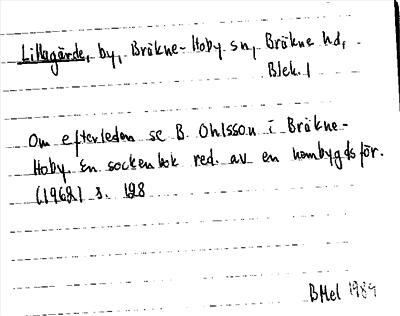 Lillagärde, by, Bräkne-Hoby sn, Bräkne hd,
Blek. l
Om efterleden se B. Ohlsson i Bräkne-
Hoby. En sockenbok red. av en hembygdsför.
(1962) s. 128
BMel 1989